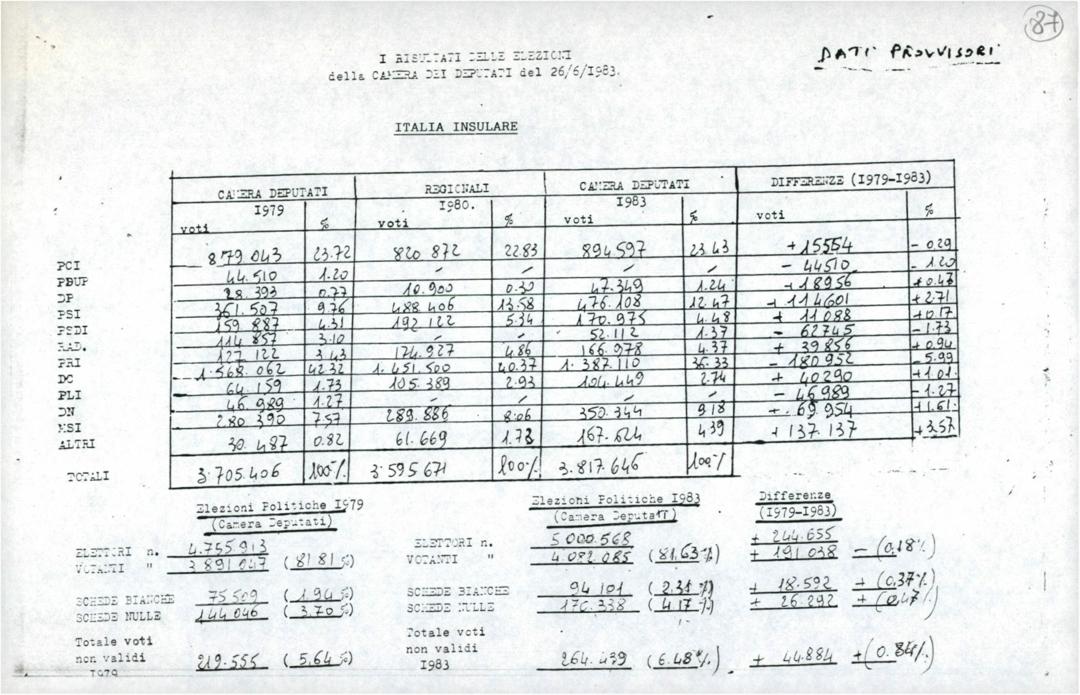 87
DATI PROVVISORI
I RISULTATI DELLE ELEZIONI
della CAMERA DEI DEPUTATI del 26/6/I983.
ITALIA INSULARE
CAMERA DEPUTATI REGIONALI CAMERA DEPUTATI DIFFERENZE (I979-I983)
I979 I980. I983
voti % voti % voti % voti %
PCI 879.043 23.72 820.872 22.83 894.597 23.43 +15554 - 0.29
PDUP 44.510 1.20 - - - - - 44510 - 1.20
DP 28.393 0.77 10.900 0.30 47.349 1.24 +18956 +0.47
PSI 361.507 9.76 488.406 13.58 476.108 12.47 +114601 +2.71
PSDI 159.887 4.31 192.122 5.34 170.975 4.48 + 11088 +0.17
RAD. 114.857 3.10 - - 52.112 1.37 - 62745 - 1.73
PRI 127.122 3.43 174.927 4.86 166.978 4.37 + 39856 +0.94
DC 1.568.062 42.32 1.451.500 40.37 1.387.110 36.33 - 180952 - 5.99
PLI 64.159 1.73 105.389 2.93 104.449 2.74 + 40290 +1.01
DN 46.989 1.27 - - - - - 46989 - 1.27
MSI 280.390 7.57 289.886 8.06 350.344 9.18 + 69.954 +1.61
ALTRI 30.487 0.82 61.669 1.73 167.624 4.39 + 137.137 +3.57
TOTALI 3.705.406 100% 3.595.671 100% 3.817.646 100%
Elezioni Politiche I979 Elezioni Politiche I983 Differenze
(Camera Deputati) (Camera Deputati) (I979-I983)
ELETTORI n. 4.755.913 ELETTORI n. 5.000.568 + 244.655
VOTANTI " 3.891.047 (81.81%) VOTANTI " 4.082.085 (81.63%) + 191.038 - (0.18%)
SCHEDE BIANCHE 75.509 (1.94%) SCHEDE BIANCHE 94.101 (2.31%) + 18.592 + (0.37%)
SCHEDE NULLE 144.046 (3.70%) SCHEDE NULLE 170.338 (4.17%) + 26.292 + (0.47%)
Totale voti Totale voti
non validi 219.555 (5.64%) non validi 264.439 (6.48%) + 44.884 + (0.84%)
I979 I983